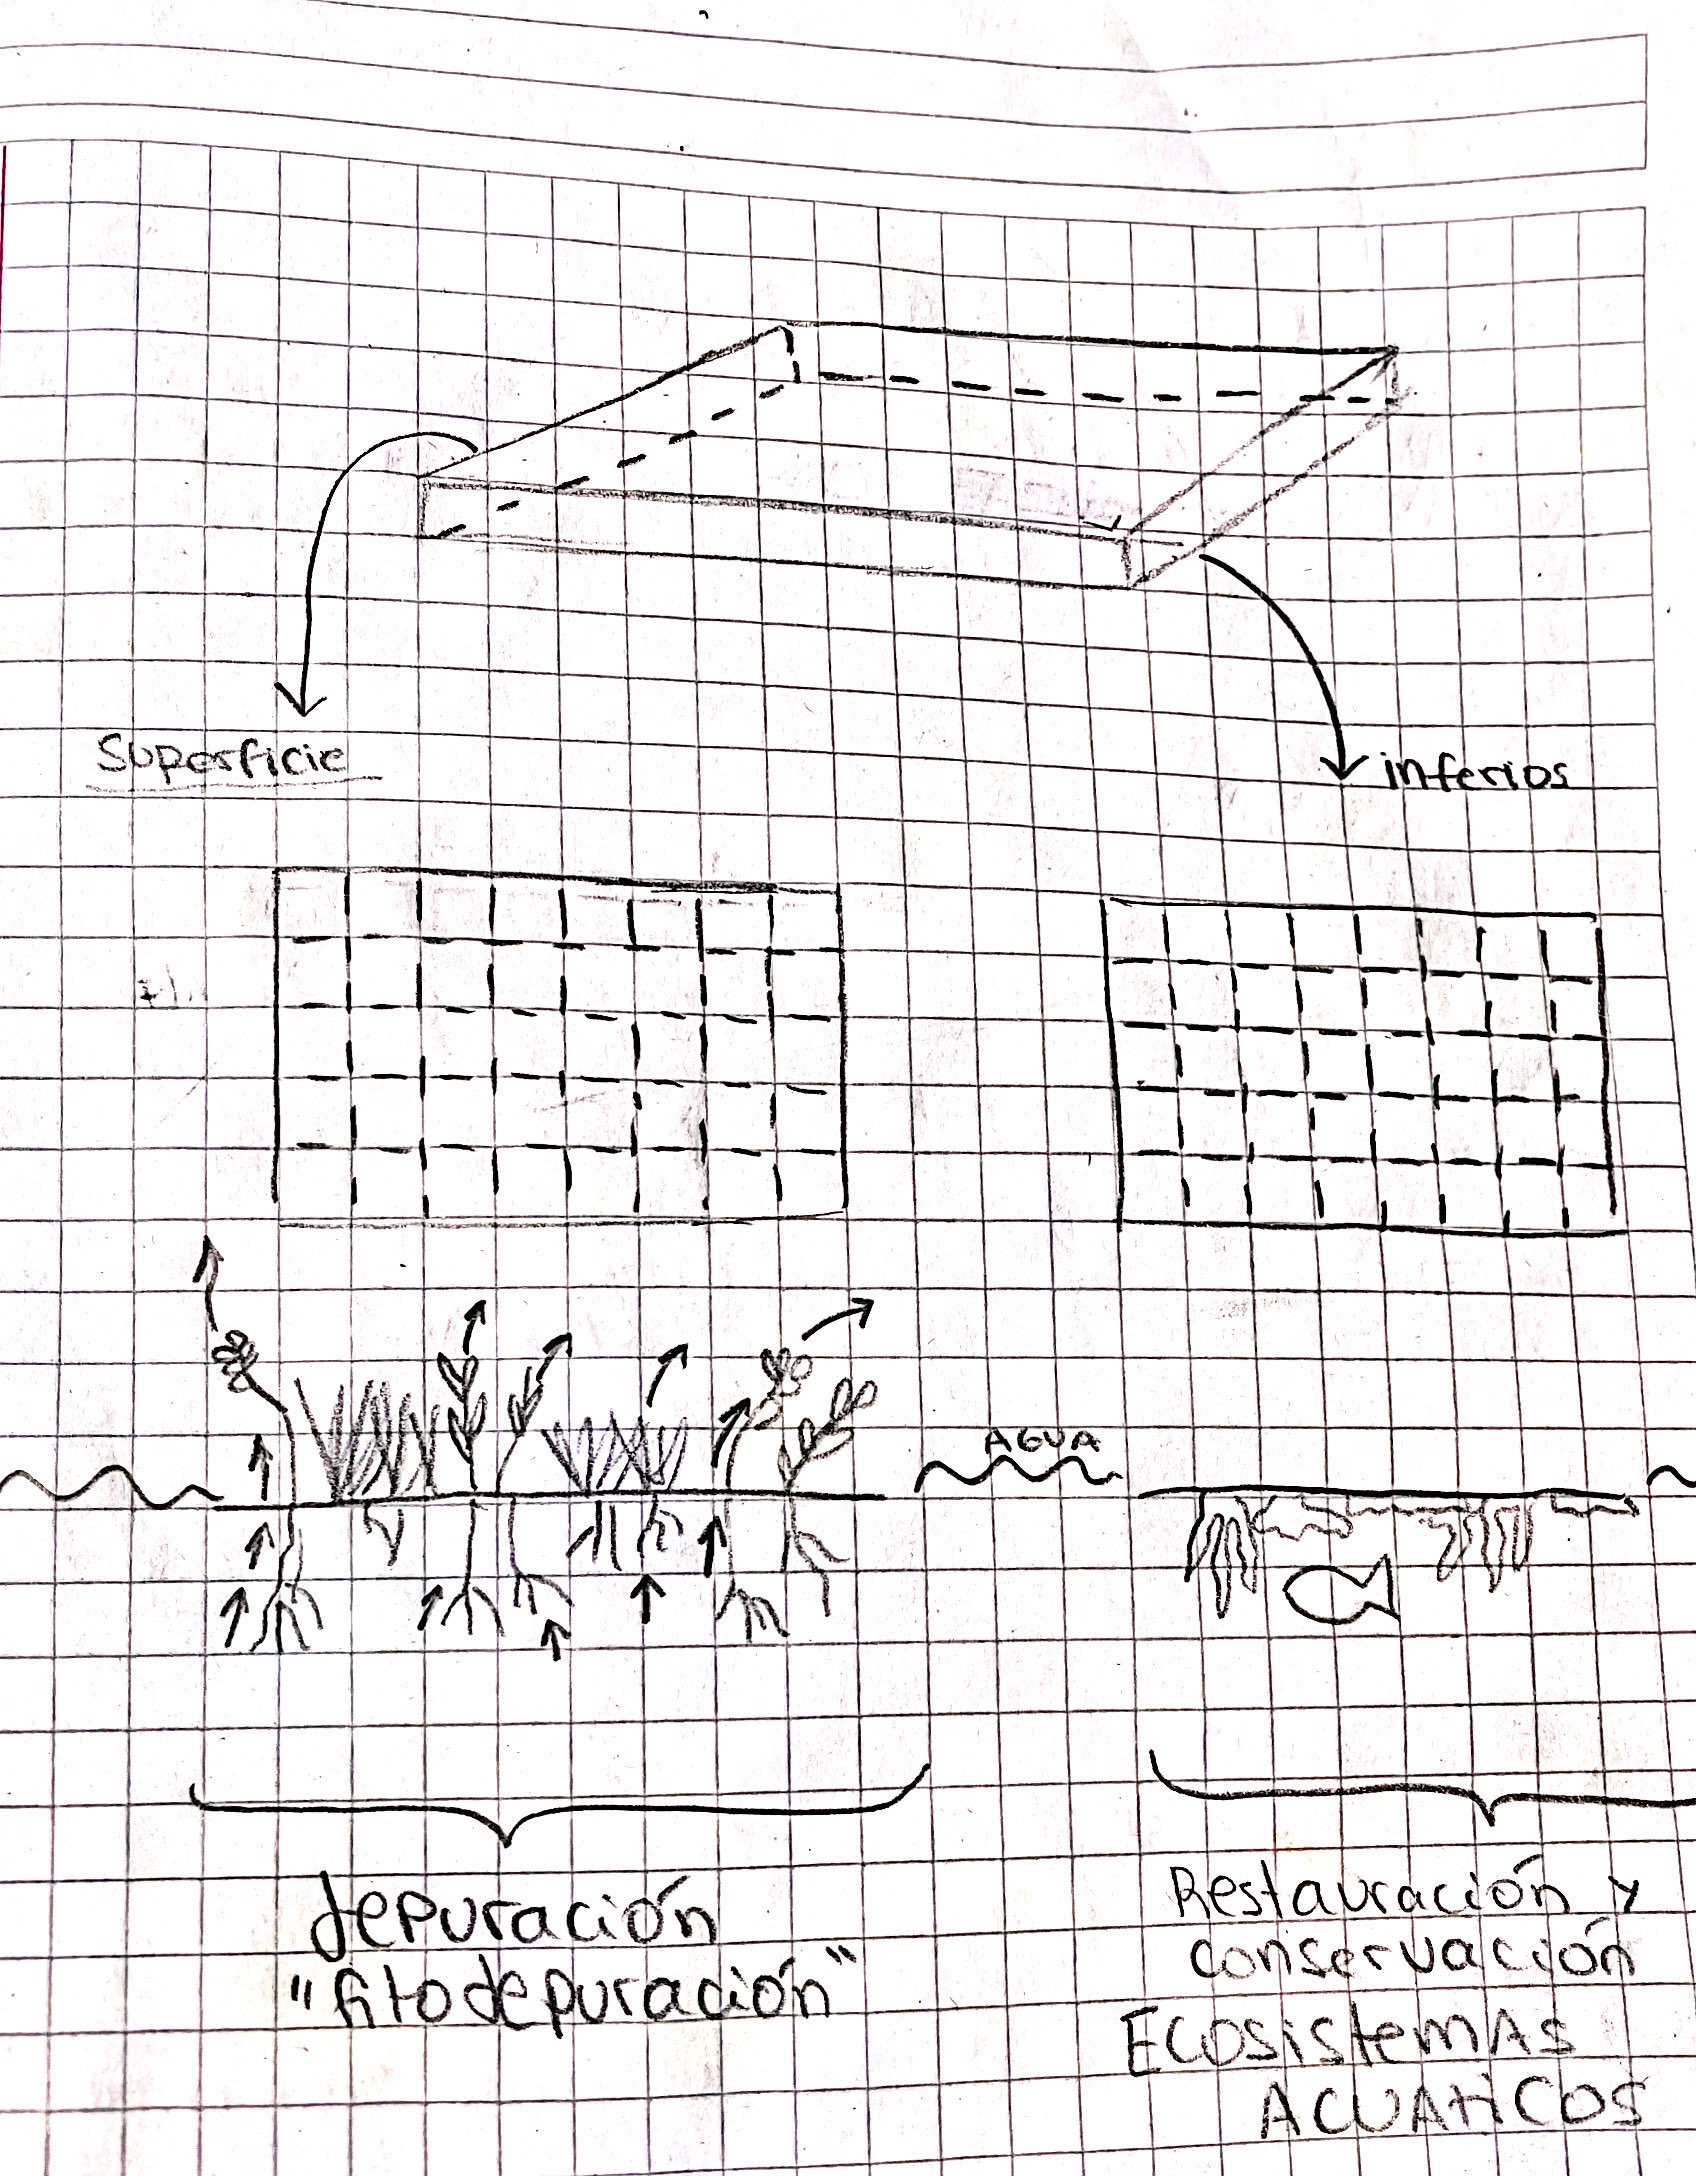 Superficie
inferios
AGUA
depuración
"fitodepuración"
Restauración y
conservación
EcosistemAs
ACUAtiCOS